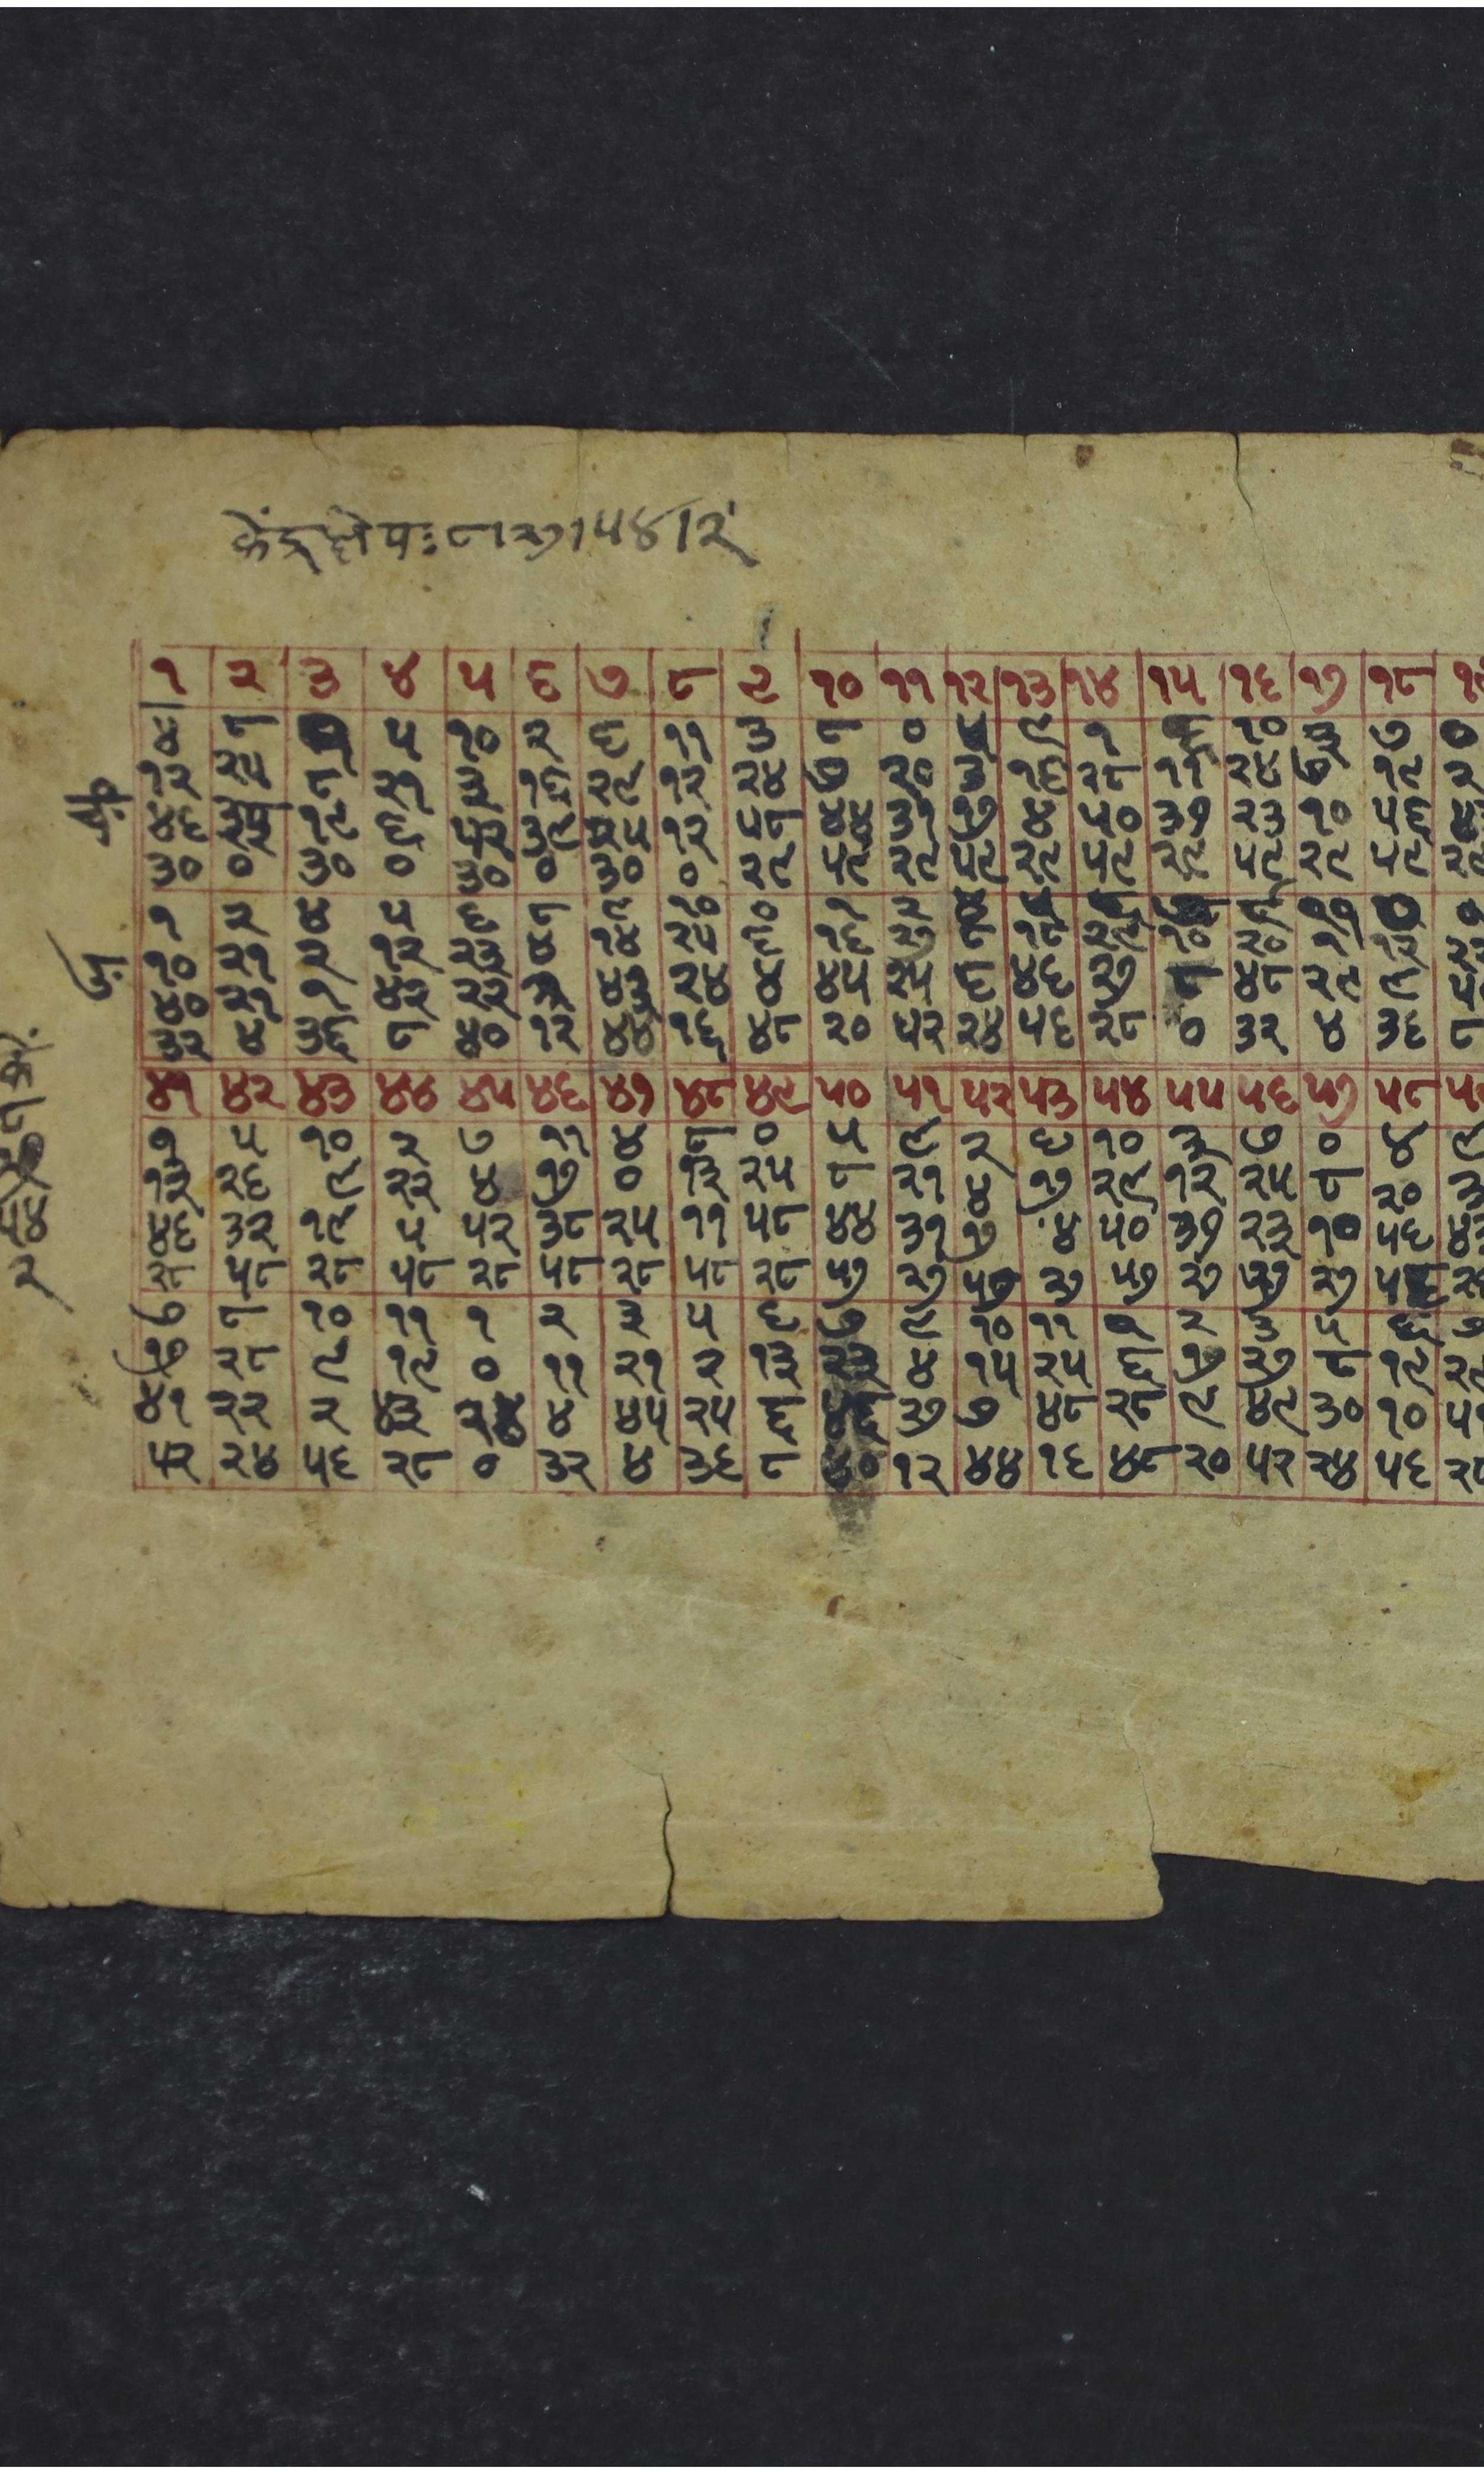 केंद्रक्षेपः ८।२७।५४।२
१ २ ३ ४ ५ ६ ७ ८ ९ १० ११ १२ १३ १४ १५ १६ १७ १८
४ ८ ५ १० २ ६ ११ ३ ८ ० ५ ९ १ ६ १० ३ ७ ०
१२ २५ ८ २१ ३ १६ २९ १२ २४ ७ २० ३ १६ २८ ११ २४ ७ १९ २
४६ ३३ १९ ६ ५२ ३९ २५ १२ ५८ ४४ ३१ १७ ४ ५० ३७ २३ १० ५६
३० ० ३० ० ३० ० ३० ० २९ ५९ २९ ५९ २९ ५९ २९ ५९ २९ ५९ २९
१ २ ४ ५ ६ ८ ९ १० ० १ २ ४ ५ ९ ० ०
१० २१ २ १२ २३ ४ १४ २५ ६ १६ २७ ८ १८ २९ १० २० १ १२
४० २१ १ ४२ २२ ३ ४३ २४ ४ ४५ २५ ६ ४६ २७ ८ ४८ २९ ९
३२ ४ ३६ ८ ४० १२ ४४ १६ ४८ २० ५२ २४ ५६ २८ ० ३२ ४ ३६ ८
४१ ४२ ४३ ४४ ४५ ४६ ४७ ४८ ४९ ५० ५१ ५२ ५३ ५४ ५५ ५६ ५७ ५८
१ ५ १० २ ७ ११ ४ ८ ० ५ ९ २ ६ १० ३ ७ ० ४ ९
१३ २६ ९ २२ ४ १७ ० १३ २५ ८ २१ ४ १७ २९ १२ २५ ८ २० ३
४६ ३२ १९ ५ ५२ ३८ २५ ११ ५८ ४४ ३१ १७ ४ ५० ३७ २३ १० ५६
२८ ५८ २८ ५८ २८ ५८ २८ ५८ २८ ५७ २७ ५७ २७ ५७ २७ ५७ २७ ५६
७ ८ १० ११ १ २ ३ ५ ६ ७ ९ १० ११ १ २ ३ ५ ६ ७
१७ २८ ९ १९ ० ११ २१ २ १३ २३ ४ १५ २५ ६ १७ २७ ८ १९
४१ २२ २ ४३ २४ ४ ४५ २५ ६ ४६ २७ ७ ४८ २८ ९ ४९ ३० १०
५२ २४ ५६ २८ ० ३२ ४ ३६ ८ ४० १२ ४४ १६ ४८ २० ५२ २४ ५६